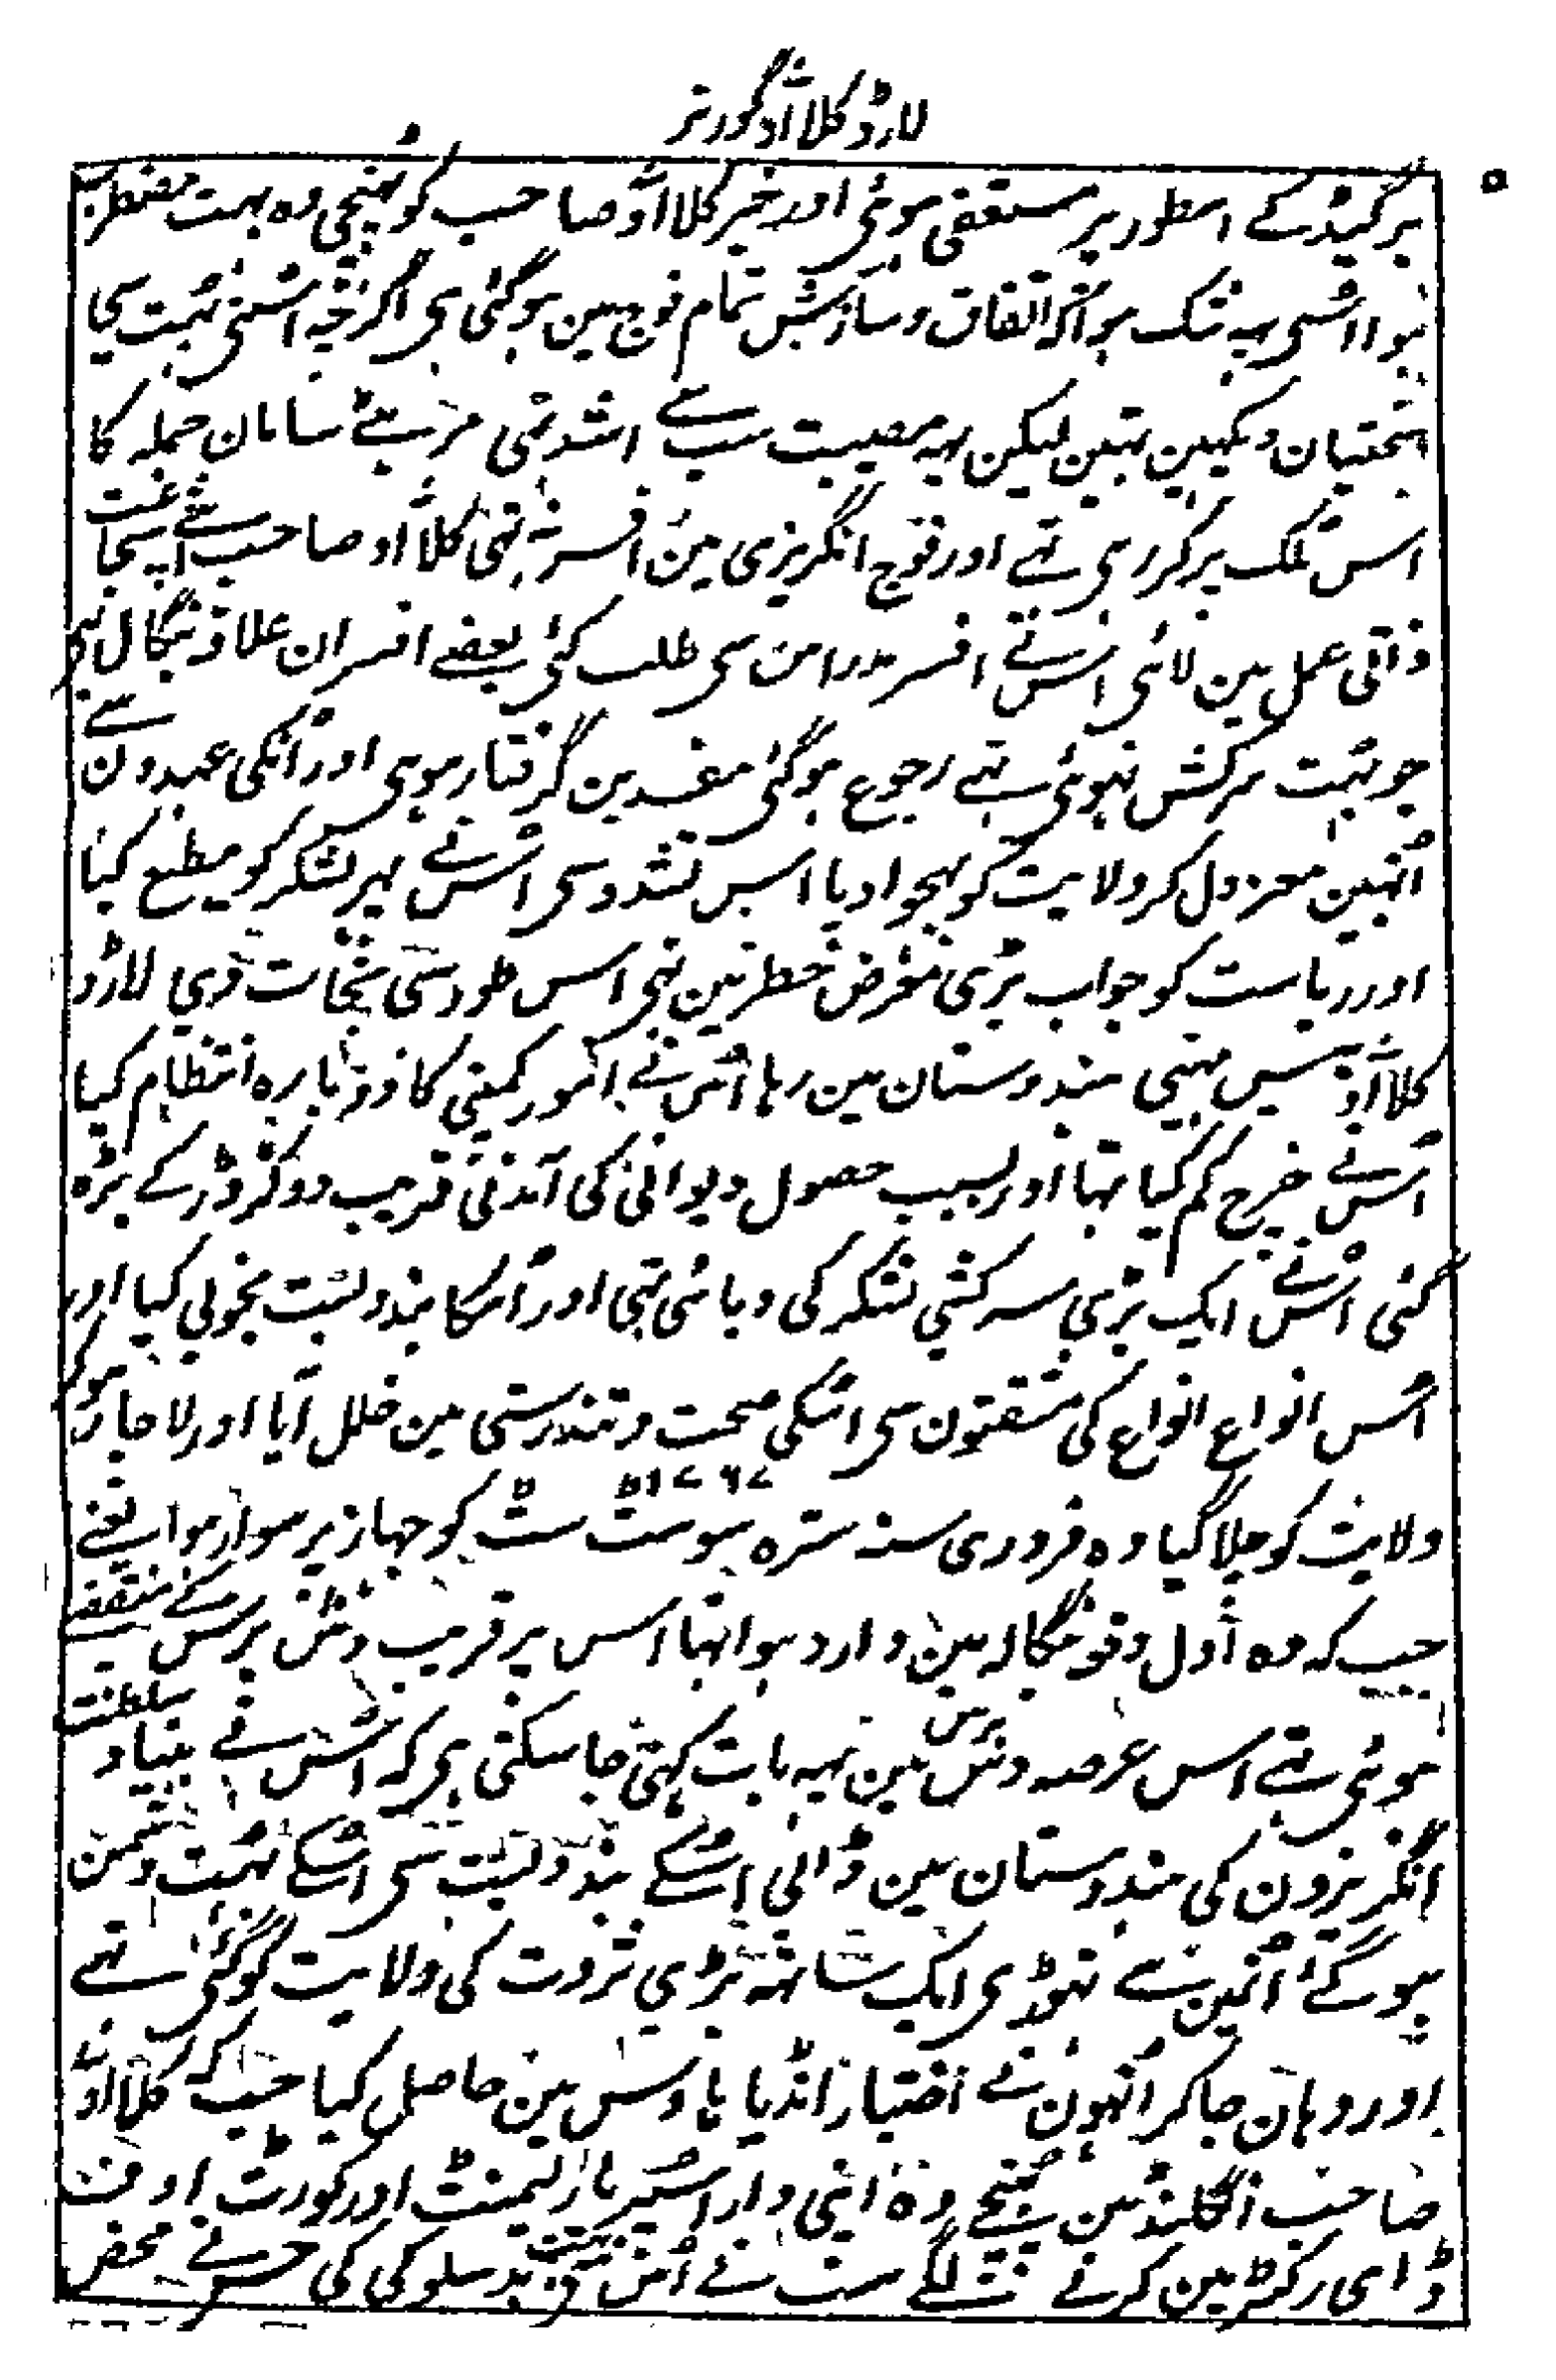 لارڈ کلااَوْ گورنر
۵
برگیڈ کے اسطور پر مستعفی ہوئی اور خبر کلااوَ صاحب کو پہنچی وہ بہت مضطرب
ہوا اسی یہ شک ہوا کہ اتفاق و سازش تمام فوج مین ہوگئی ہی اگرچہ اسنی بہت سی
سختیان دیکہین تہین لیکن یہہ مصیبت سب سے اشد تہی مرہٹے سامان حملہ کا
اس ملک پر کر رہی تہے اور فوج انگریزی مین افسر نہ تہی کلااَو صاحب نے اپنی شجاعت
ذاتی عمل مین لائی اُس نے افسر مدراس سی طلب کئی بعضے افسران علاقہ بنگال نیز
جو بہت سرکش نہوئی تہے رجوع ہوگئی مفسدین گرفتار ہوی اور اُنکی عہدون سے
اُنہین معزول کر ولایت کو بہجوا دیا اس تشدد سی اُس نے پہر لشکر کو مطیع کیا
اور ریاست کو جواب بڑی معرض خطر مین تہی اس طور سی نجات دی لارڈ
کلااَوْ بیس مہینی ہندوستان مین رہا اُس نے امور کمپنی کا دوبارہ انتظام کیا
اُس نے خرچ کم کیا تہا اور بسبب حصول دیوانی کی آمدنی قریب دو کڑوڑ کے بڑہ
گئی اُس نے ایک بڑی سرکشی لشکر کی دبائی تہی اور اُسکا بندوبست بخوبی کیا اور
اُس انواع انواع کی مشقتون سی اُسکی صحت و تندرستی مین خلل آیا اور لاچار ہوکر
ولایت کو چلا گیا وہ فروری سنہ سترہ سو ست سٹ ۱۷۶۷ کو جہاز پر سوار ہوا یعنے
جب کہ وہ اول دفعہ بنگالہ مین وارد ہوا تہا اس پر قریب دس برس کے منقضے
ہوئی تہے اس عرصہ دس برس مین یہہ بات کہی جا سکتی ہی کہ اُس نے بنیاد سلطنت
انگریزون کی ہندوستان مین ڈالی اُسکے بندوبست سی اُسکے بہت دشمن
ہو گئے اُنمین سے تہوڑی ایک ساتہہ بڑی ثروت کی ولایت کو گئی تہے
اور وہان جاکر اُنہون نے اختیار انڈیا ہاوس مین حاصل کیا جب کہ کلااوْ
صاحب انگلنڈ مین پہنچے وہ اپنی وار اُسپر پارلیمنٹ اور کورٹ اوف
ڈای رکٹر مین کرنے لگے سب نے اُس بد سلوکی کی جس نے محض